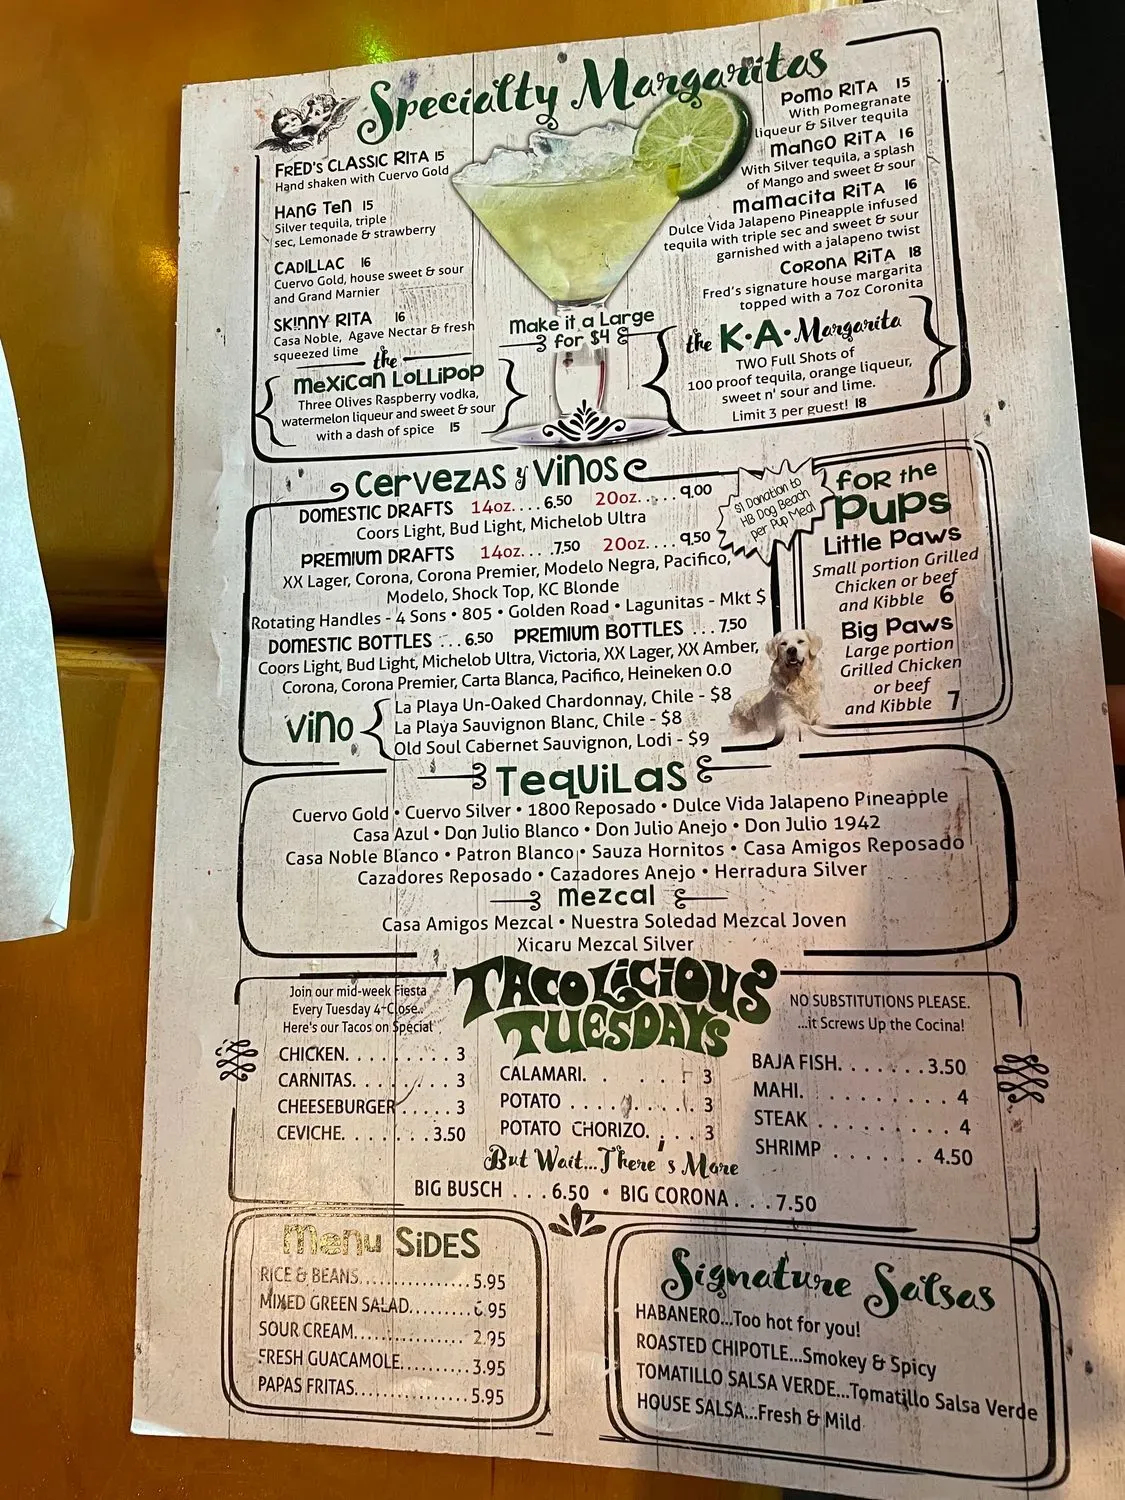 Specialty Margaritas
FRED'S CLASSIC RITA 15
Hand shaken with Cuervo Gold
HANG TEN 15
Silver tequila, triple
sec, Lemonade & strawberry
CADILLAC 16
Cuervo Gold, house sweet & sour
and Grand Marnier
SK!NNY RITA 16
Casa Noble, Agave Nectar & fresh
squeezed lime
the
MEXICAN LOLLIPOP
Three Olives Raspberry vodka,
watermelon liqueur and sweet & sour
with a dash of spice 15
Make it a Large
for $4
POMO RITA 15
With Pomegranate
liqueur & Silver tequila
MANGO RITA 16
With Silver tequila, a splash
of Mango and sweet & sour
MAMACITA RITA 16
Dulce Vida Jalapeno Pineapple infused
tequila with triple sec and sweet & sour
garnished with a jalapeno twist
CORONA RITA 18
Fred's signature house margarita
topped with a 7oz Coronita
the K•A•Margarita
TWO Full Shots of
100 proof tequila, orange liqueur,
sweet n' sour and lime.
Limit 3 per guest! 18
CERVEZAS y VINOS
DOMESTIC DRAFTS 14oz....6.50 20oz......9.00
Coors Light, Bud Light, Michelob Ultra
PREMIUM DRAFTS 14oz....7.50 20oz....9.50
XX Lager, Corona, Corona Premier, Modelo Negra, Pacifico,
Modelo, Shock Top, KC Blonde
Rotating Handles - 4 Sons • 805 • Golden Road • Lagunitas - Mkt $
DOMESTIC BOTTLES ...6.50 PREMIUM BOTTLES ...7.50
Coors Light, Bud Light, Michelob Ultra, Victoria, XX Lager, XX Amber,
Corona, Corona Premier, Carta Blanca, Pacifico, Heineken 0.0
VINO
La Playa Un-Oaked Chardonnay, Chile - $8
La Playa Sauvignon Blanc, Chile - $8
Old Soul Cabernet Sauvignon, Lodi - $9
$1 Donation to
HB Dog Beach
per Pup Meal
FOR the
Pups
Little Paws
Small portion Grilled
Chicken or beef
and Kibble 6
Big Paws
Large portion
Grilled Chicken
or beef
and Kibble 7
TEQUILAS
Cuervo Gold • Cuervo Silver • 1800 Reposado • Dulce Vida Jalapeno Pineapple
Casa Azul • Don Julio Blanco • Don Julio Anejo • Don Julio 1942
Casa Noble Blanco • Patron Blanco • Sauza Hornitos • Casa Amigos Reposado
Cazadores Reposado • Cazadores Anejo • Herradura Silver
mezcal
Casa Amigos Mezcal • Nuestra Soledad Mezcal Joven
Xicaru Mezcal Silver
TACOLICIOUS
TUESDAYS
Join our mid-week Fiesta
Every Tuesday 4-Close..
Here's our Tacos on Special
NO SUBSTITUTIONS PLEASE.
...it Screws Up the Cocina!
CHICKEN. . . . . . . . . 3
CARNITAS. . . . . . . . 3
CHEESEBURGER . . . . . 3
CEVICHE. . . . . . . 3.50
CALAMARI. . . . . 3
POTATO . . . . . . . . . 3
POTATO CHORIZO. . . . 3
BAJA FISH. . . . . . . 3.50
MAHI. . . . . . . . . . 4
STEAK . . . . . . . . . 4
SHRIMP . . . . . . 4.50
But Wait...There's More
BIG BUSCH . . . 6.50 • BIG CORONA . . . 7.50
Menu SIDES
RICE & BEANS..................5.95
MIXED GREEN SALAD.........6.95
SOUR CREAM.................2.95
FRESH GUACAMOLE..........3.95
PAPAS FRITAS..................5.95
Signature Salsas
HABANERO...Too hot for you!
ROASTED CHIPOTLE...Smokey & Spicy
TOMATILLO SALSA VERDE...Tomatillo Salsa Verde
HOUSE SALSA...Fresh & Mild